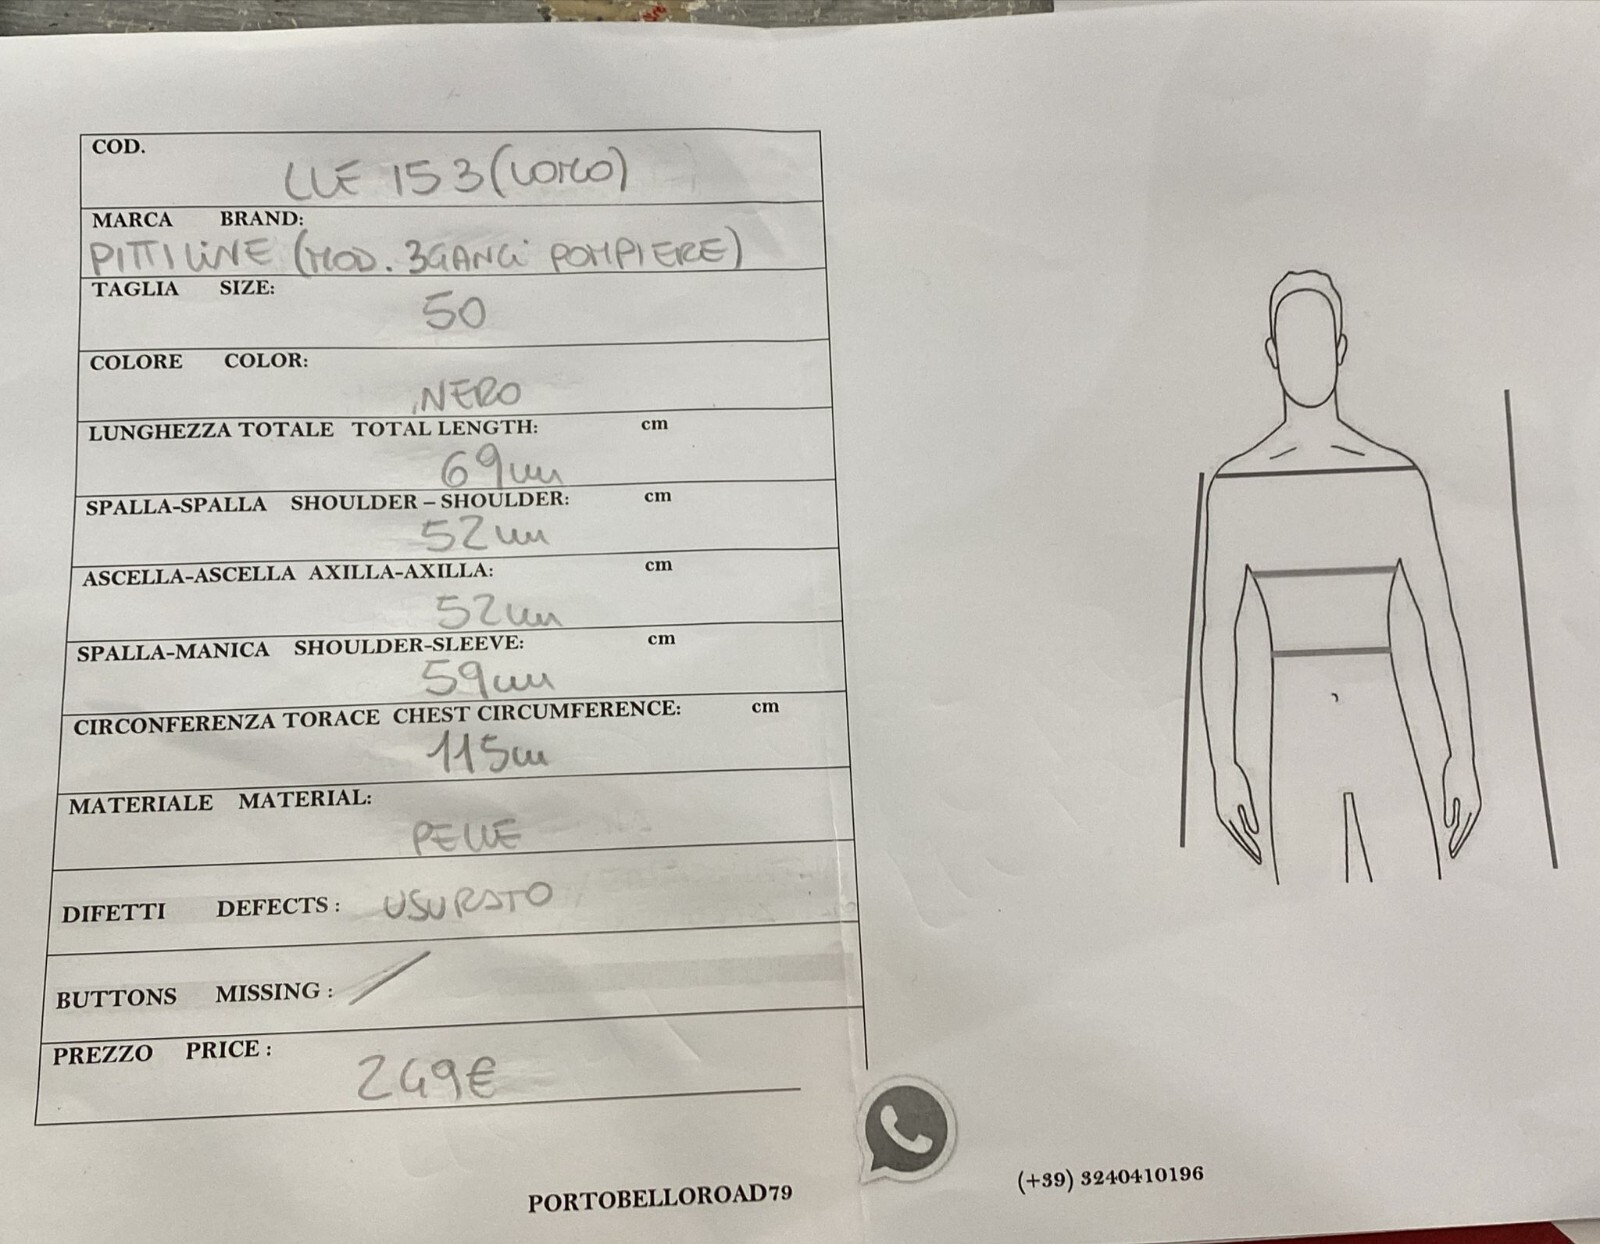 COD.
LLE 153 (LORO)
MARCA BRAND:
PITTI LiNE (MOD. 3GANCi POMPIERE)
TAGLIA SIZE:
50
COLORE COLOR:
NERO
LUNGHEZZA TOTALE TOTAL LENGTH: cm
69cm
SPALLA-SPALLA SHOULDER – SHOULDER: cm
52cm
ASCELLA-ASCELLA AXILLA-AXILLA: cm
52cm
SPALLA-MANICA SHOULDER-SLEEVE: cm
59cm
CIRCONFERENZA TORACE CHEST CIRCUMFERENCE: cm
115cm
MATERIALE MATERIAL:
PELLE
DIFETTI DEFECTS : USURATO
BUTTONS MISSING : /
PREZZO PRICE :
249€
PORTOBELLOROAD79
(+39) 3240410196